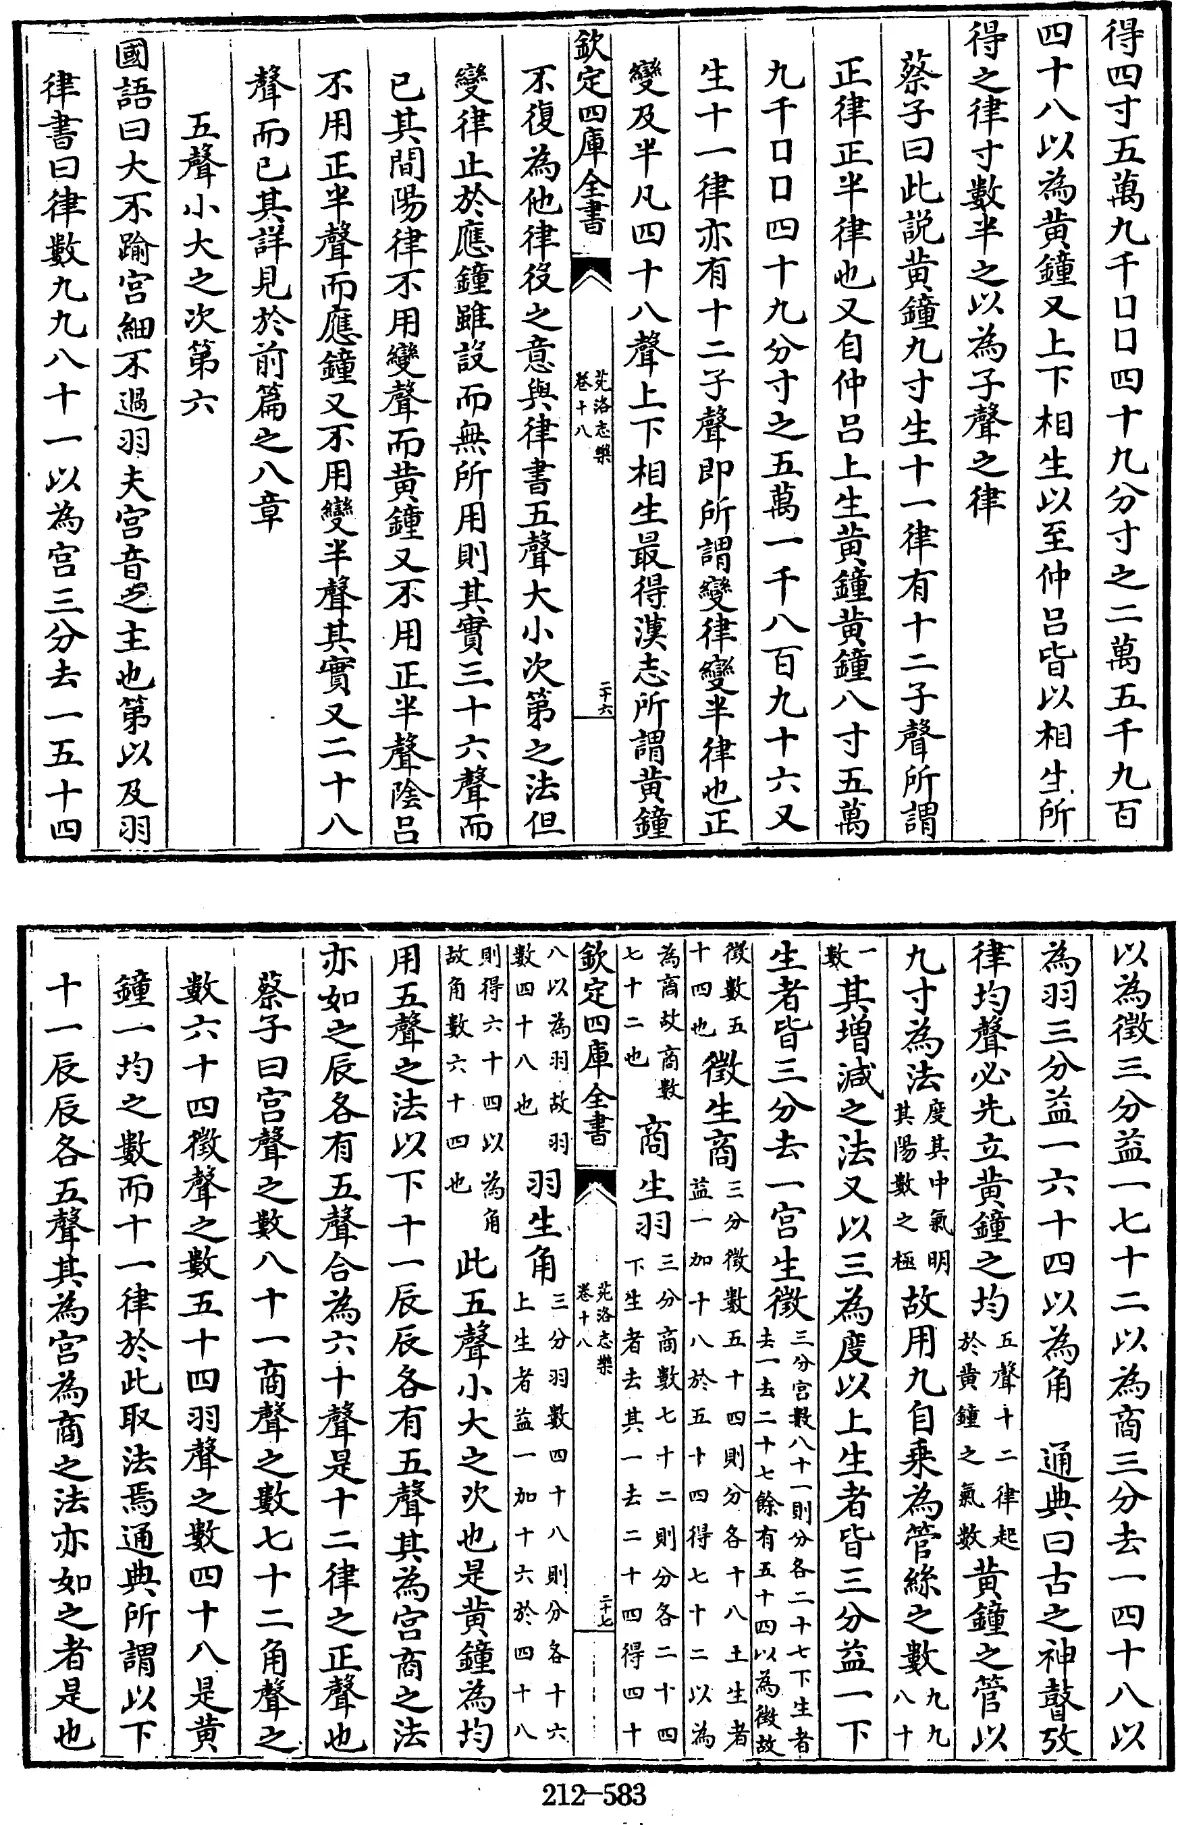 得四寸五萬九千口口四十九分寸之二萬五千九百
四十八以為黃鐘又上下相生以至仲呂皆以相生所
得之律寸數半之以為子聲之律
蔡子曰此説黃鐘九寸生十一律有十二子聲所謂
正律正半律也又自仲呂上生黃鐘黃鐘八寸五萬
九千口口四十九分寸之五萬一千八百九十六又
生十一律亦有十二子聲即所謂變律變半律也正
變及半凡四十八聲上下相生最得漢志所謂黃鐘
欽定四庫全書
苑洛志樂
卷十八
二十六
不復為他律役之意與律書五聲大小次第之法但
變律止於應鐘雖設而無所用則其實三十六聲而
已其間陽律不用變聲而黃鐘又不用正半聲陰呂
不用正半聲而應鐘又不用變半聲其實又二十八
聲而已其詳見於前篇之八章
五聲小大之次第六
國語曰大不踰宮細不過羽夫宮音之主也第以及羽
律書曰律數九九八十一以為宮三分去一五十四
以為徵三分益一七十二以為商三分去一四十八以
為羽三分益一六十四以為角　通典曰古之神瞽攷
律均聲必先立黃鐘之均五聲十二律起於黃鐘之氣數黃鐘之管以
九寸為法度其中氣明其陽數之極故用九自乗為管絲之數九九八十
一數其増減之法又以三為度以上生者皆三分益一下
生者皆三分去一宮生徵三分宮數八十一則分各二十七下生者去一去二十七餘有五十四以為徵故
徵數五十四也徵生商三分徵數五十四則分各十八上生者益一加十八於五十四得七十二以為
為商故商數七十二也商生羽三分商數七十二則分各二十四下生者去其一去二十四得四十
欽定四庫全書
苑洛志樂
卷十八
二十七
八以為羽故羽數四十八也羽生角三分羽數四十八則分各十六上生者益一加十六於四十八
則得六十四以為角故角數六十四也此五聲小大之次也是黃鐘為均
用五聲之法以下十一辰辰各有五聲其為宮商之法
亦如之辰各有五聲合為六十聲是十二律之正聲也
蔡子曰宮聲之數八十一商聲之數七十二角聲之
數六十四徵聲之數五十四羽聲之數四十八是黃
鐘一均之數而十一律於此取法焉通典所謂以下
十一辰辰各五聲其為宮為商之法亦如之者是也
212-583